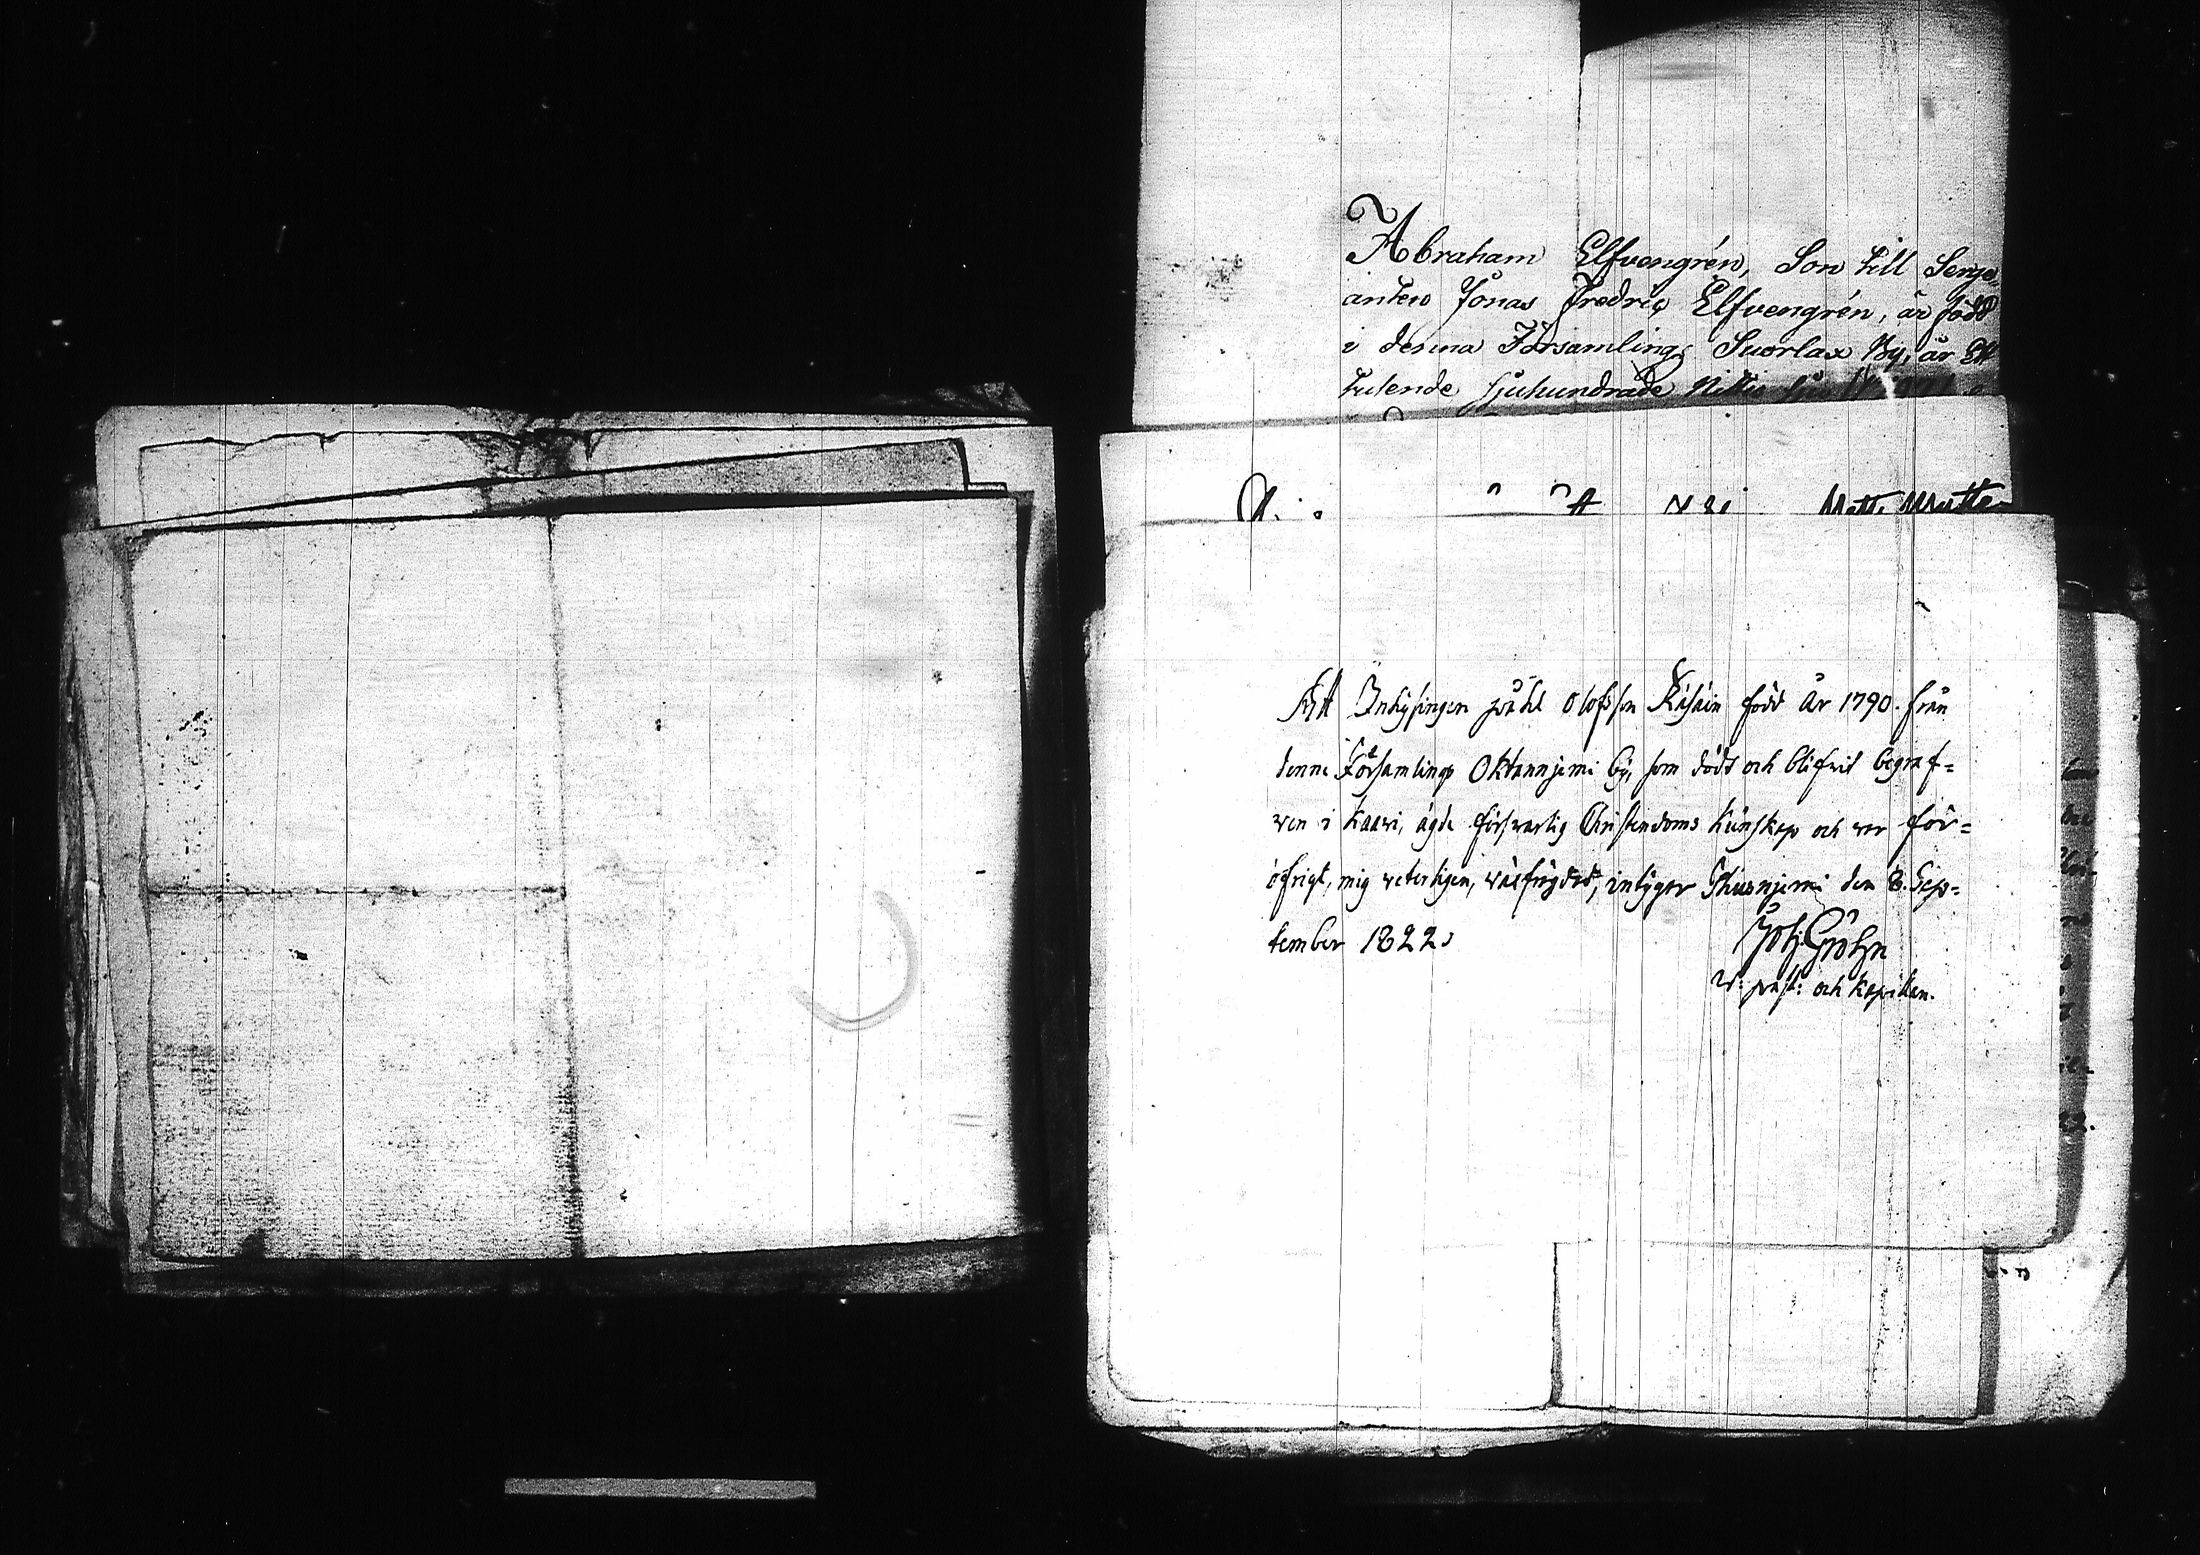 Abraham Elfvengrén, Son till Serge,
anten Jonas Fredric Elfvengrén, är född
i denna Församling, Suorlax By, år Ett
tusende Sjuhundrade Nittio
Matts Matts
Att Inhysingen Påhl Olofsson Räsäin född år 1790. från
denne Församlings Oktannjemi by, som dödt och blifvit begraf=
ven i Kaavi, ägde försvarlig Christendoms kunskap och var för=
öfrigt, mig veterligen, välfrägdad, intygar Thusnjemi den 8. Sep=
tember 1822.
Joh: Gröhn
v: past: och kapellan.